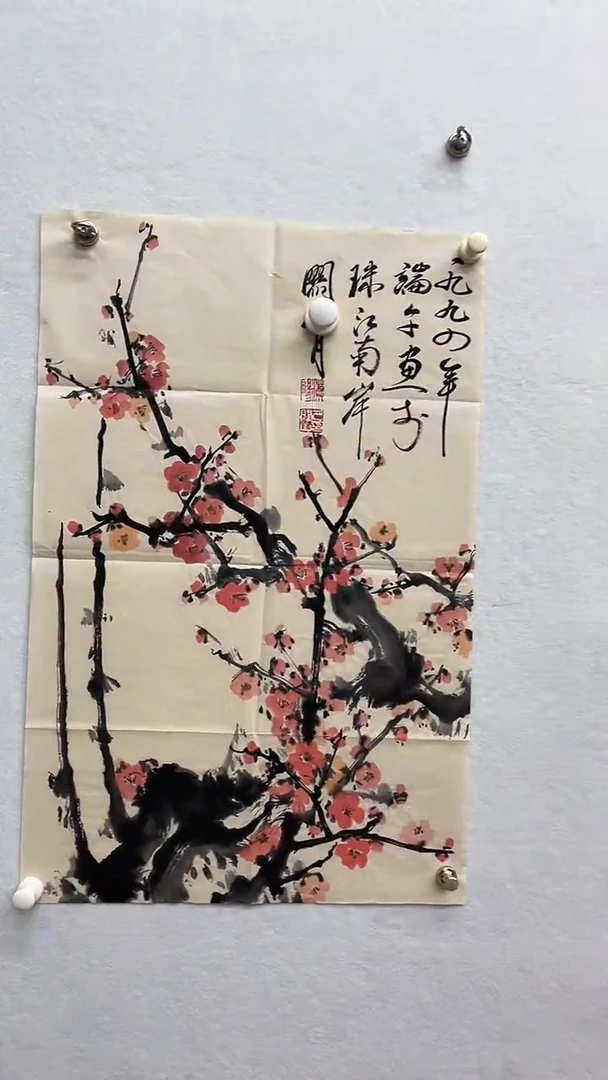 一九九四年
端午画于
珠江南岸
關月